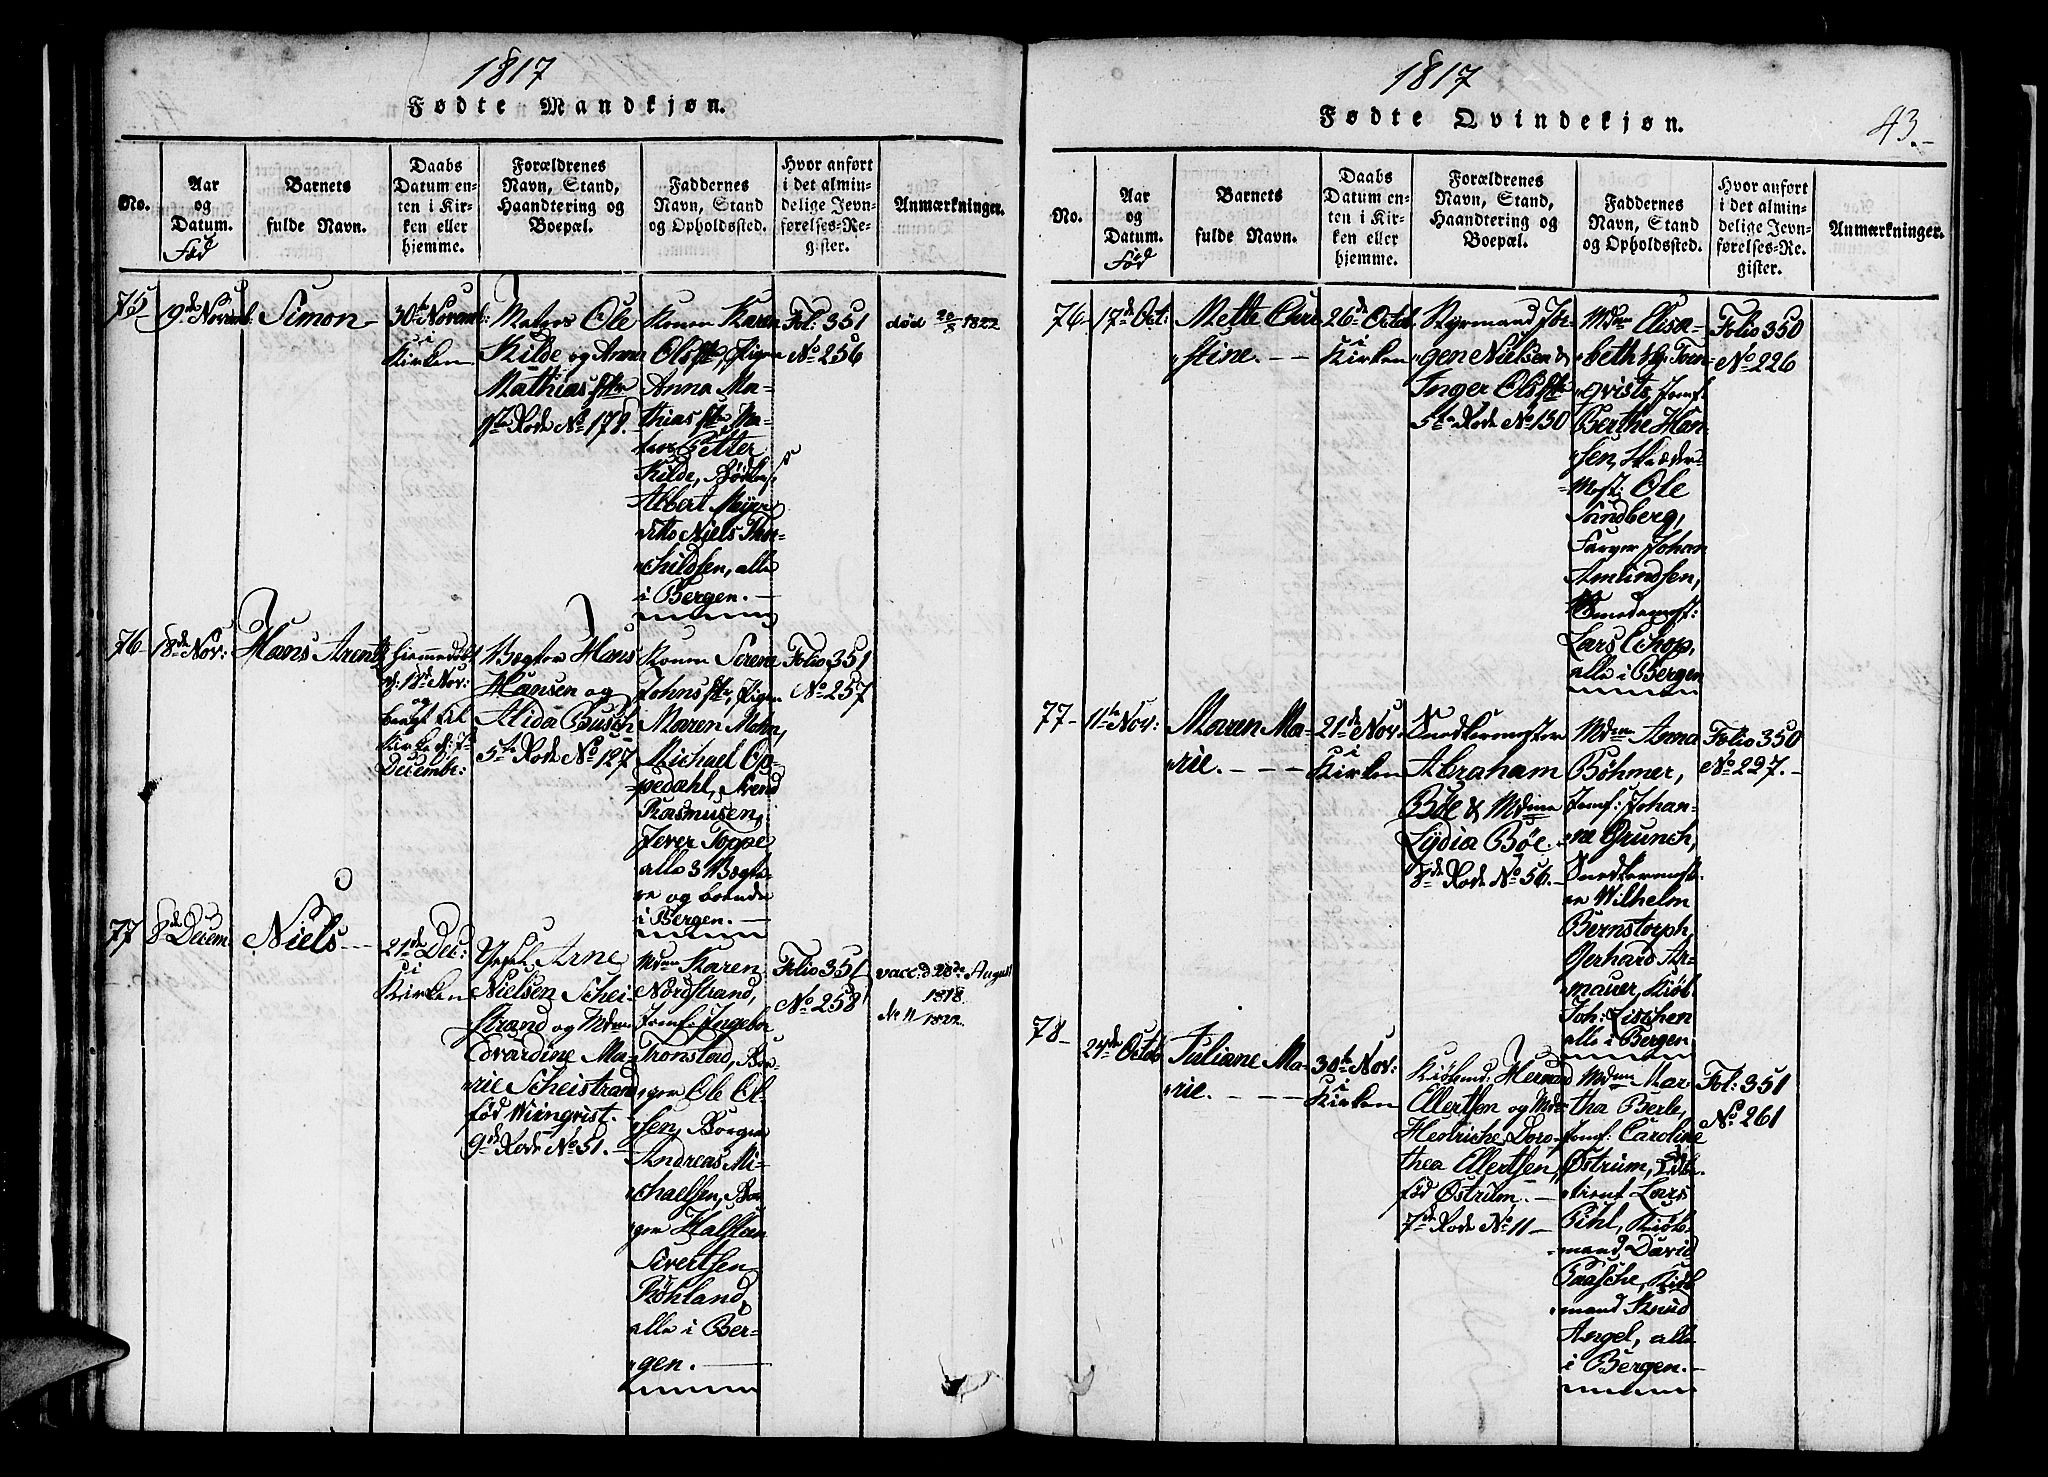 1817
Fødte Mandkjøn.
No.
Aar
og
Datum.
Fød
Barnets
fulde Navn.
Daabs
Datum en-
ten i Kir-
ken eller
hjemme.
Forældrenes
Navn, Stand,
Haandtering og
Boepæl.
Faddernes
Navn, Stand
og Opholdssted.
Hvor anført
i det almin-
delige Jevn-
førelses-Re-
gister.
Anmærkninger.
75
9de Novemb:
Simon
30te Novemb:
i
Kirken
Ole
Kilde og Anna
Mathiasdtr
9de Rode No 178.
Konen Karen
Olsdtr, Pigen
Anna Ma-
thiasdtr, Ma-
Petter
Kilde,
Albert Meyer
Niels Thor-
childsen, alle
i Bergen.
Fol: 351
No 256
død 20/8 1822
76
18de Nov:
Hans Arent
Hiemmedøbt
d: 18de Nov:
og
bragt til
Kirke d: 7de
Decembr:
Bægter Hans
Hansen og
Alida Busch
5te Rode No 127
Konen Serene
Johnsdtr, Pigen
Maren Mohn,
Michael Op-
pedahl, Svend
Rasmusen,
Iver Toppe
alle 3 Bøgte-
re og boende
i Bergen.
Folio 351
No 257
77
8de Decem
Niels
21de Dec:
i
Kirken
Arne
Nielsen Schei-
strand og Mdme
Edvardine Ma-
rie Scheistrand
fød Wiingvist.
9de Rode No 51.
Mdme Karen
Nordstrand,
Jomf: Ingebor
Tronstad, Bor-
ger Ole Ol-
sen, Borger
Andreas Mi-
chaelsen, Bor-
ger Halsteen
Sivertsen
Røhland,
alle i Ber-
gen.
Folio 351
No 258
vacc: d 28de August
1818
No 11/1822.
1817
43.
Fødte Qvindekjøn.
No.
Aar
og
Datum.
Fød
Barnets
fulde Navn.
Daabs
Datum en-
ten i Kir-
ken eller
hjemme.
Forældrenes
Navn, Stand,
Haandtering og
Boepæl.
Faddernes
Navn, Stand
og Opholdssted.
Hvor anført
i det almin-
delige Jevn-
førelses-Re-
gister.
Anmærkninger.
76
17de Oct:
Mette Chri
stine.
26de Octob
i
Kirken
Styrmand Jør-
gen Nielsen &
Inger Olsdtr
5te Rode No 130
Mdme Elisa-
beth
qvist, Jomf:
Berthe Han
sen, Skræder-
Mest: Ole
Sandberg,
Farger Johan
Amundsen,
Smedemest:
Lars Echop,
alle i Bergen
Folio 350
No 226
77
11te Nov:
Maren Ma-
rie.
21de Nov.
i
Kirken
Snedkermester
Abraham
Bøe & Mdme
Lydia Bøe
8de Rode No 56.
Mdme Anna
Böhmer,
Jomf: Johan-
ne Grunch,
Snedkermest-
er Wilhelm
Bernstorph,
Gerhard Ar-
mauer, Kiøb
Joh: Lischen
alle i Bergen
Folio 350
No 227.
78
24de Octob
Juliane Ma-
rie.
30te Nov:
i
Kirken
Kiøbmd: Hermand
Ellertsen og Mdme
Henriche Doro-
thea Ellertsen,
fød Østrum.
7de Rode No 11
Mdme Mar-
tha Berle,
Jomf: Caroline
Østrum,
Lars
Pihl, Kiøb-
mand David
Paasche, Kiøb
mand Knud
Angel, alle
i Bergen.
Fol: 351
No 261